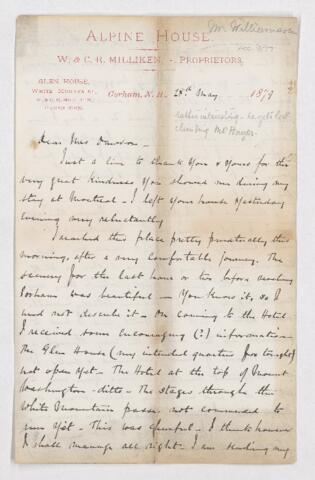 Mr Williamson
ALPINE HOUSE
W. & C. R. MILLIKEN, - PROPRIETORS.
GLEN HOUSE,
WHITE MOUNTAINS,
Gorham, N. H., 28th May 1879
rather interesting - he gets lost
climbing Mt Hayes.
Dear Mrs Dawson -
Just a line to thank you & yours for the
very great kindness you showed me during my
stay at Montreal - I left your house yesterday
evening very reluctantly
I reached this place pretty punctually this
morning, after a very comfortable journey. The
scenery for the last hour or two before reaching
Gorham was beautiful - You know it, so I
need not describe it - On coming to the Hotel
I received some encouraging (?) information -
The Glen House (my intended quarters for tonight)
not open yet - The Hotel at the top of Mount
Washington - ditto - The stages through the
White Mountain passes not commenced to
run yet - This was cheerful - I think however
I shall manage all right - I am sending my